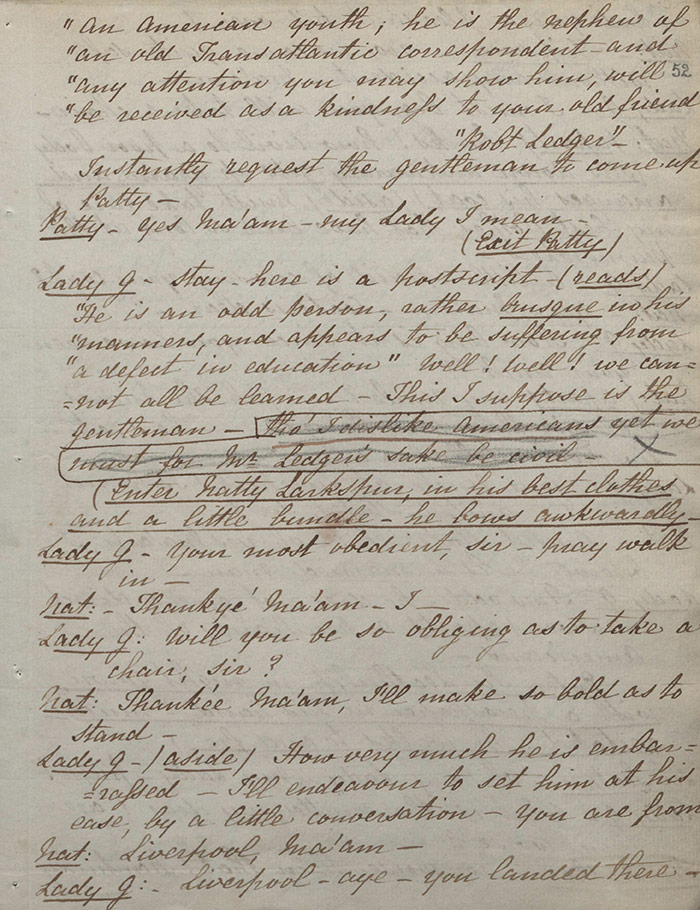 "an American youth; he is the nephew of
"an old Transatlantic correspondent - and
"any attention you may show him, will
52
"be received as a kindness to your old friend
"Robt Ledger" -
Instantly request the gentleman to come up
Patty -
Patty - yes Ma'am - my Lady I mean -
(Exit Patty)
Lady G - stay - here is a postscript - (reads)
"He is an odd person, rather brusque in his
"manners, and appears to be suffering from
"a defect in education" Well! Well! we can=
=not all be learned - This I suppose is the
gentleman - tho' I dislike Americans yet we
must for Mr Ledger's sake be civil - X
(Enter Natty Larkspur, in his best clothes
and a little bundle - he bows awkwardly -
Lady G - your most obedient, sir - pray walk
in -
Nat: - Thankye' Ma'am - I -
Lady G: Will you be so obliging as to take a
chair, sir?
Nat: Thank'ee Ma'am, I'll make so bold as to
stand -
Lady G - (aside) How very much he is embar=
=rassed - I'll endeavour to set him at his
ease, by a little conversation - you are from
Nat: Liverpool, Ma'am -
Lady G: - Liverpool - aye - you landed there -